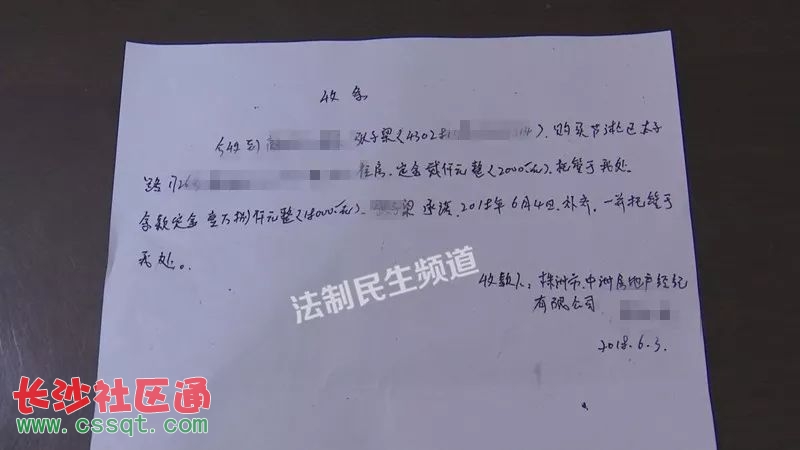 收条
今收到 梁(4302 314),购买芦淞区太子
路126 住房,定金贰仟元整(2000元),托管于我处
余款定金壹万捌仟元整(18000元), 梁承诺,2018年6月4日,补齐,一并托管于
我处。
收款人:株洲市中洲房地产经纪
有限公司
2018.6.3.
法制民生频道
长沙社区通
www.cssqt.com